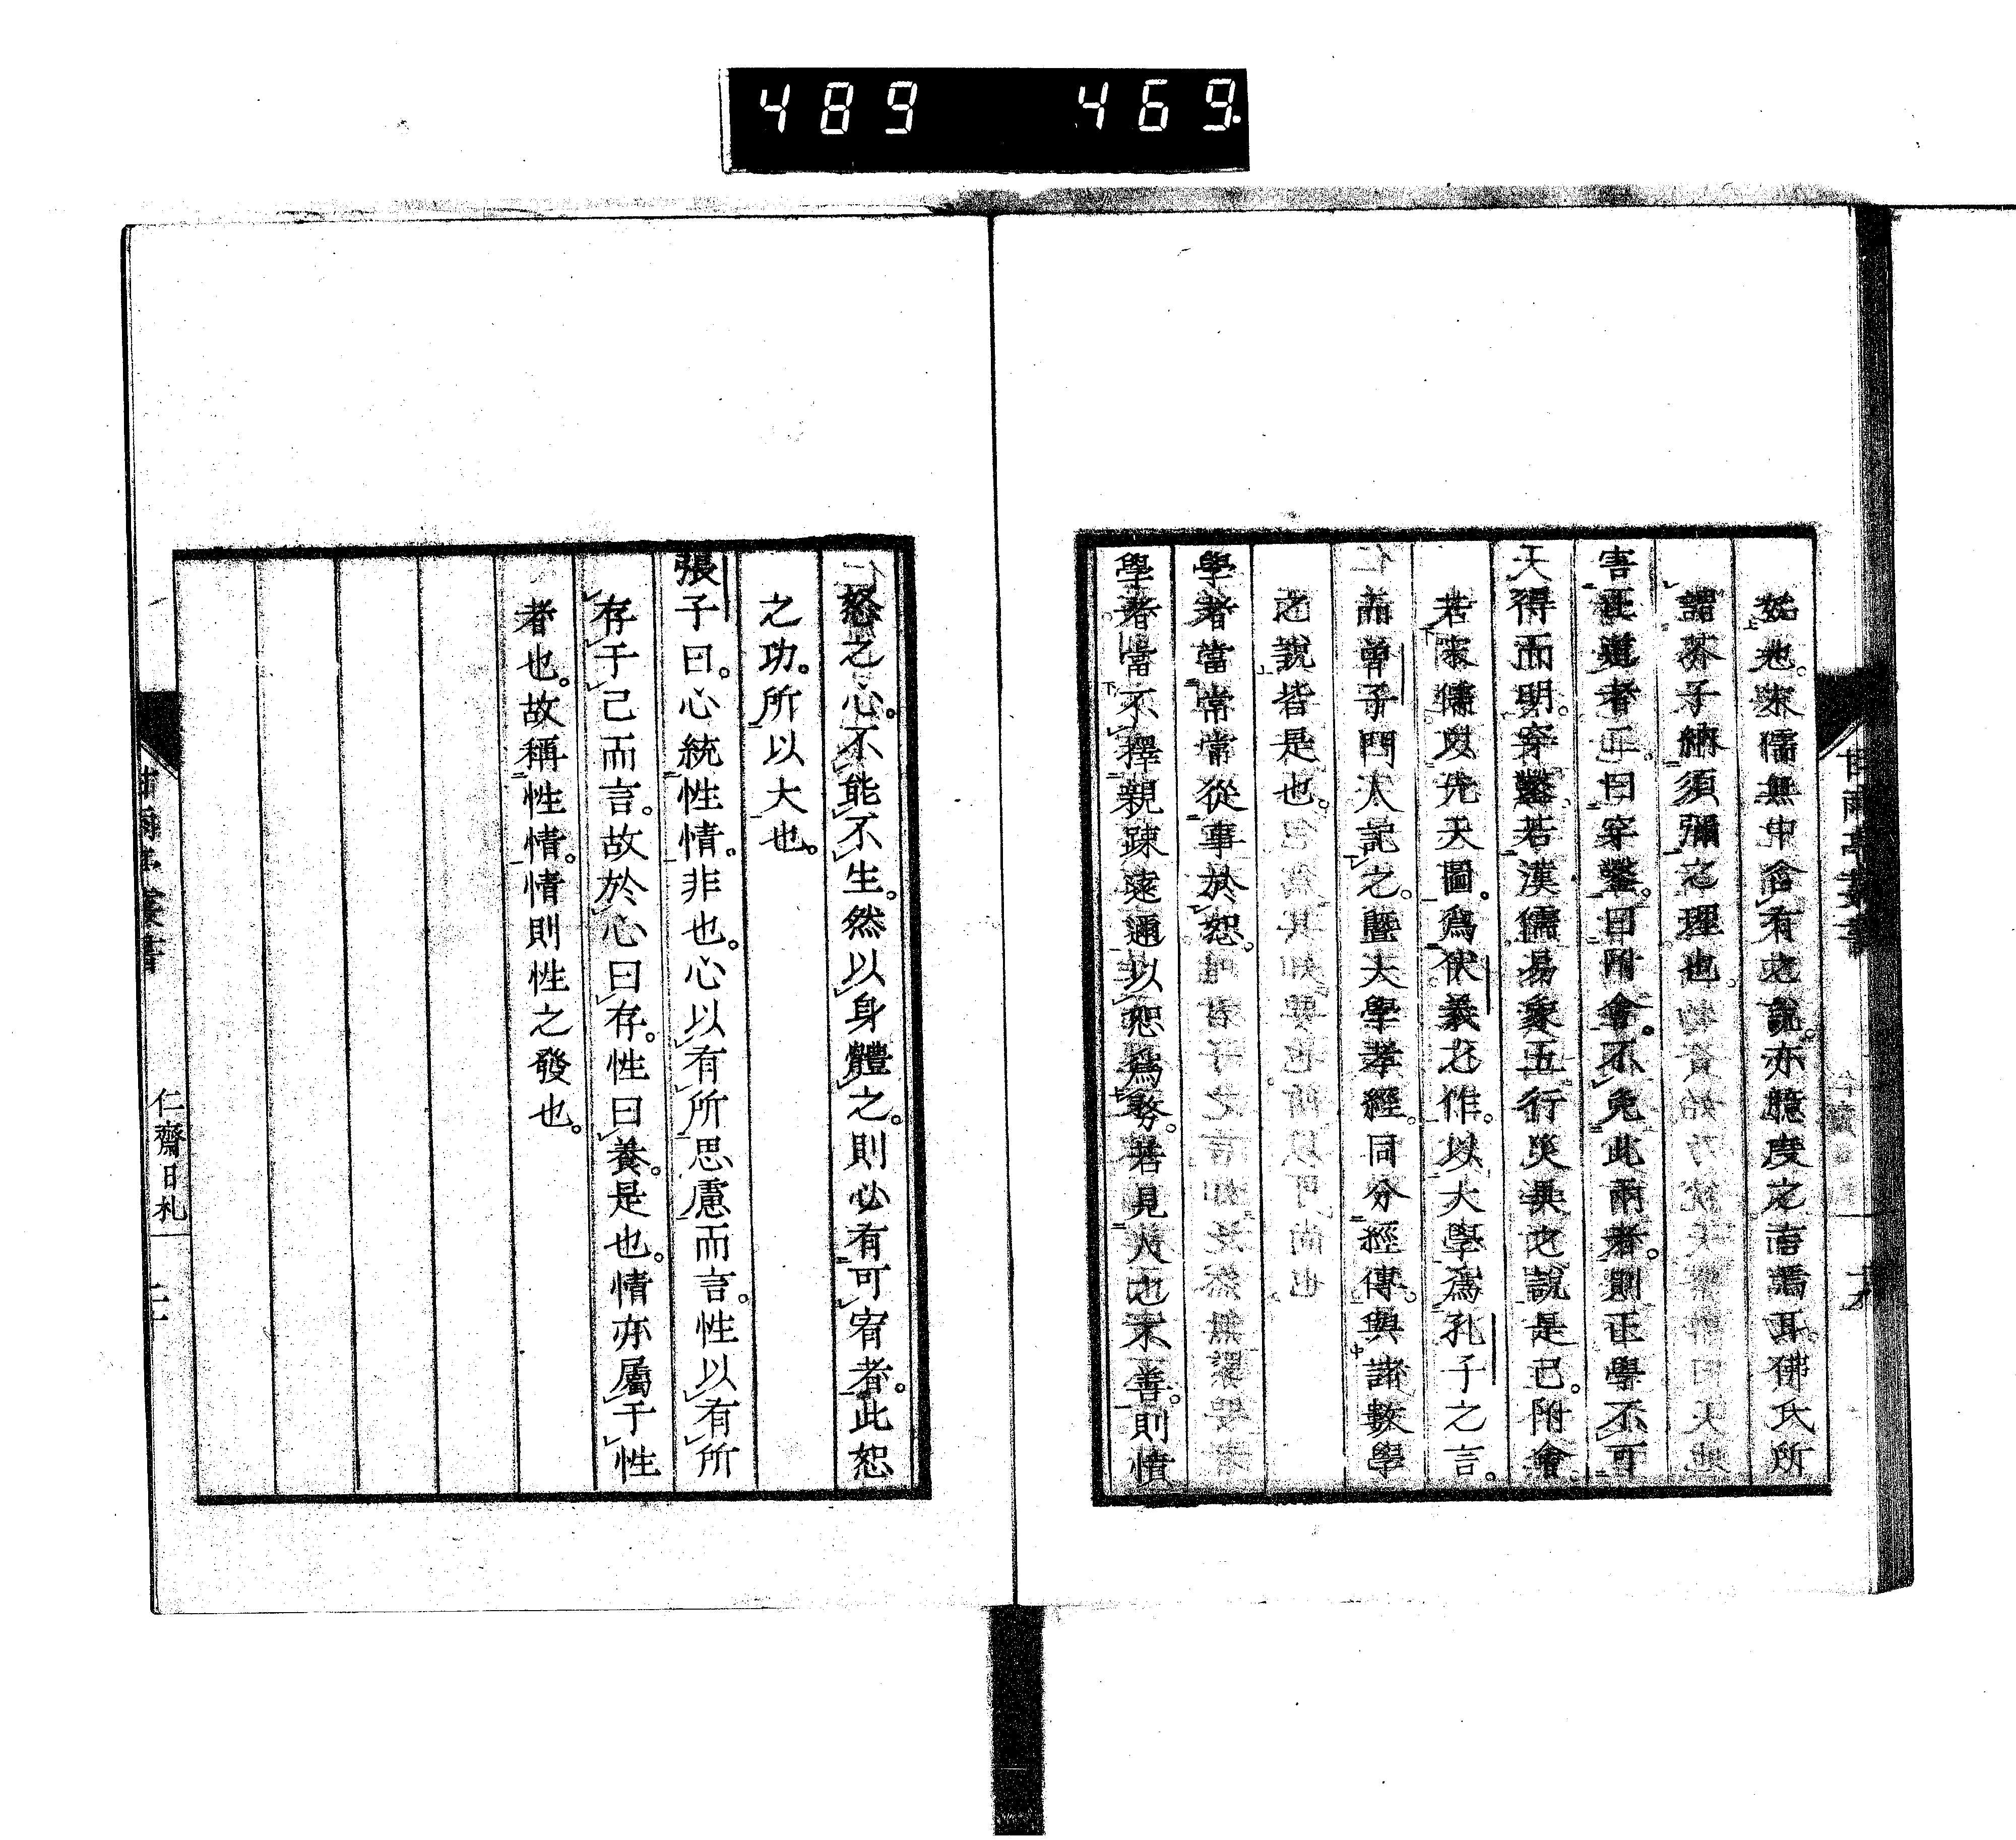 489 469
妓也。宋儒無中含有之說。亦臆度之言焉耳。佛氏所
謂芥子納須彌之理也。
害正道者二。曰穿鑿。曰附會。不免此兩者。則正學不可
得而明。穿鑿若漢儒易象五行災異之說是已。附會
若宋儒以先天圖。爲伏羲之作。以大學爲孔子之言。
而曾子門人記之。曁大學孝經。同分經傳。與諸數學
之說皆是也。
學者當常從事於恕。
學者當不擇親疎遠邇以恕爲務。若見人之不善。則憤
怒之心。不能不生。然以身體之。則必有可宥者。此恕
之功。所以大也。
張子曰。心統性情。非也。心以有所思慮而言。性以有所
存于己而言。故於心曰存。性曰養。是也。情亦屬于性
者也。故稱性情。情則性之發也。
甘雨亭叢書
仁齋日札
二十